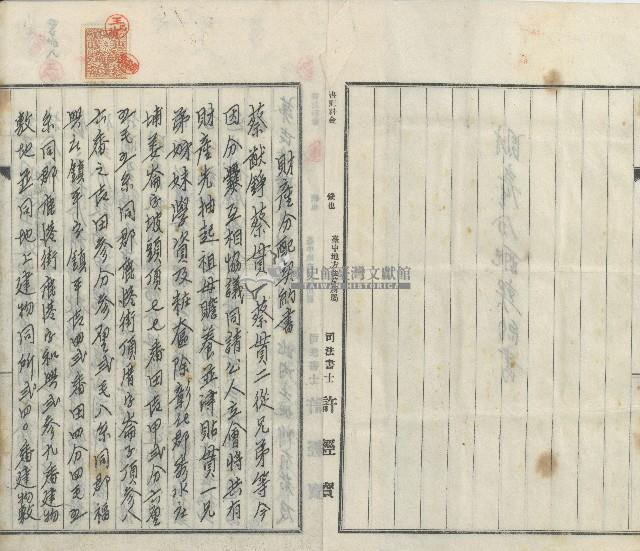 財產分配契約書
蔡猷錚蔡母一蔡貫二從兄弟等今
因分爨互相協議同請公人立會將共有
財產先抽起祖母贍養並津貼貫一兄
弟姊妹學資及粧奩除彰化郡秀水庄
埔姜崙字坡頭頂七七番田壱甲弍分六厘
五毛五糸同郡鹿港街頂厝字崙子頂參八
六番之壱田參分參厘弍毛八糸同郡福
興庄鎮平字鎮平壱四弍番田四分四毛五
糸同郡鹿港街鹿港字和興弍參九番建物
敷地並同地上建物同所弍四〇番建物敷
司法書士 許經寶
史館臺灣文獻館
TAIWAN HISTORICA